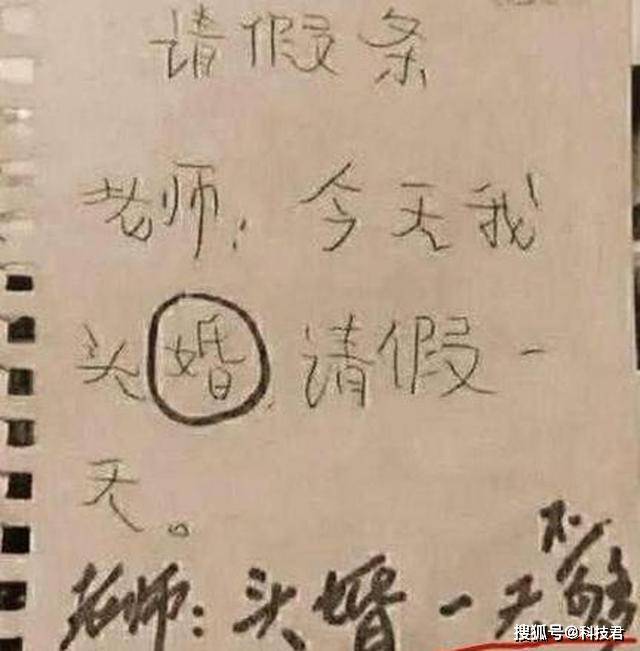 请假条
老师:今天我
头婚,请假一
天。
老师:头婚一天不够
搜狐号@科技君